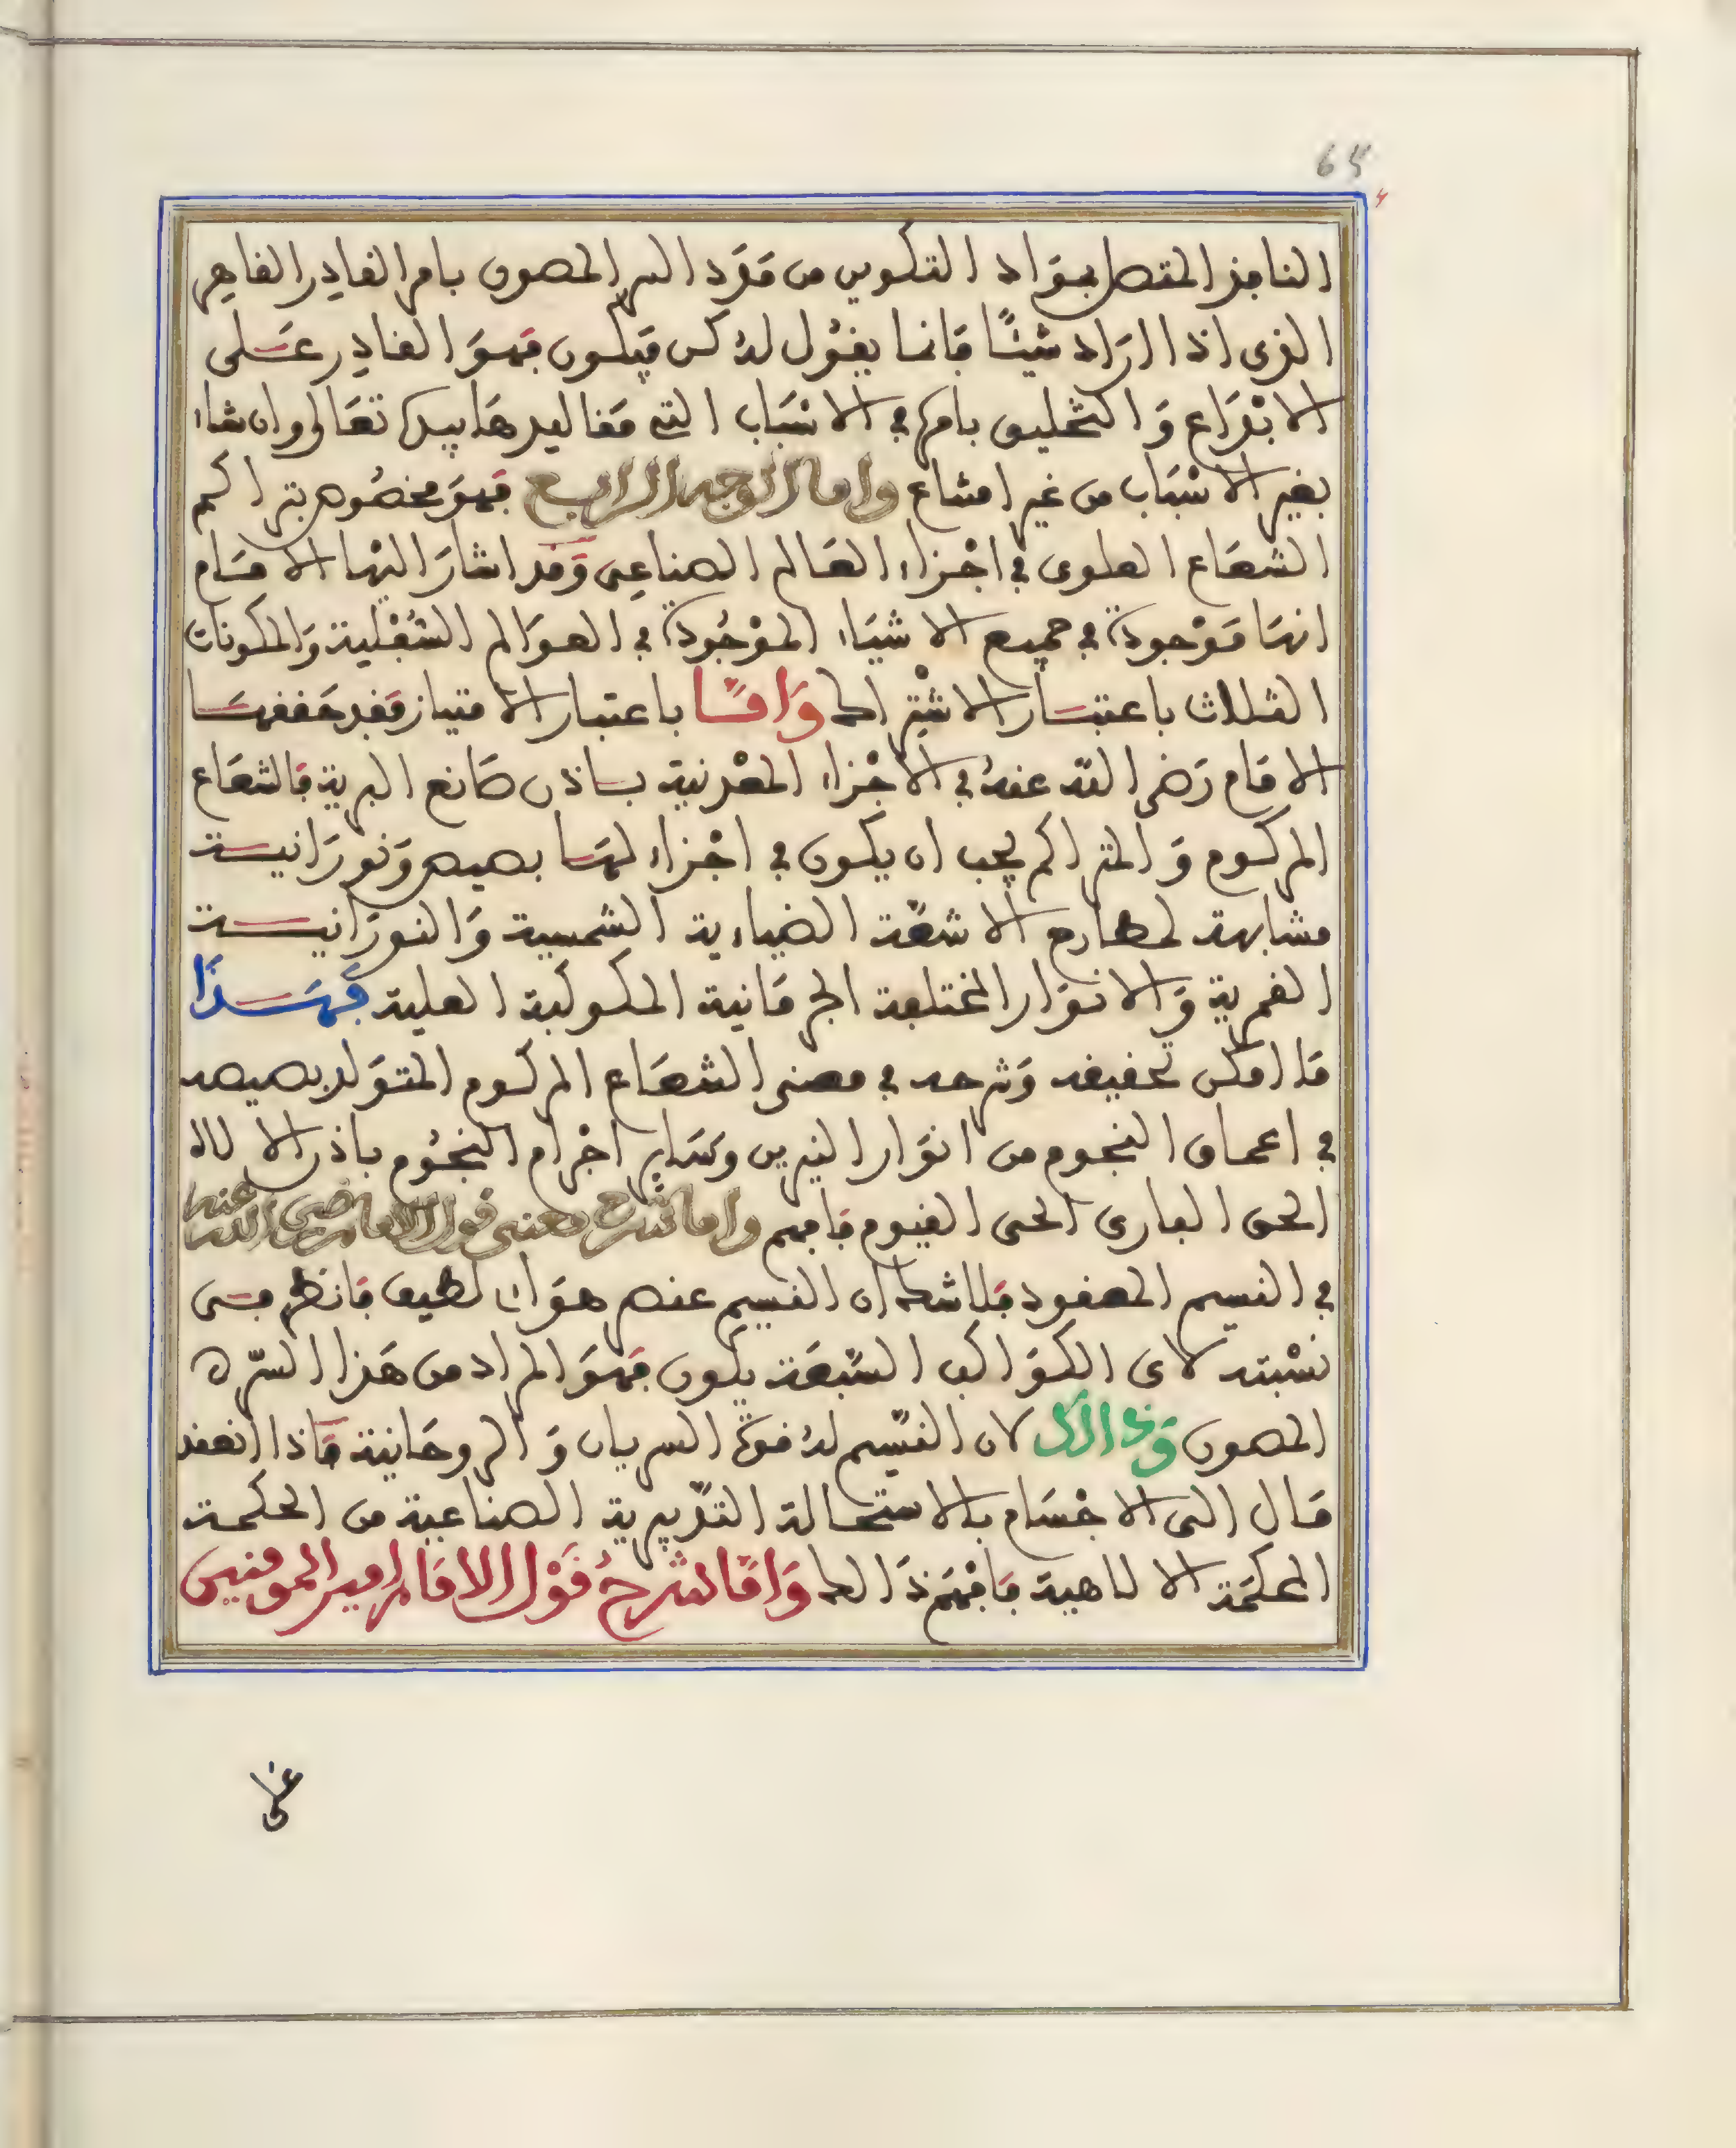 65
النافذ المتصل بمواد التكوين من مدد السر المصون بامر القادر القاهر
الذى اذا اراد شيئًا فانما يقول له كن فيكون فهو القادر على
الابداع والتخليق بامره في الاسباب التي مقاليدها بيده تعالى وان شاء
بغير الاسباب من غير امتناع واما الوجه الرابع فهو مخصوص بتراكم
الشعاع العلوى في اجزاء العالم الصناعي وقد اشار اليها الامام
انها موجودة في جميع الاشياء الموجودة في العوالم السفلية والمكونات
الثلاث باعتبار الاشتراك واما باعتبار الامتياز فقد حققها
الامام رضى الله عنه في الاجزاء المعدنية باذن صانع البرية فالشعاع
المركوم والمتراكم يجب ان يكون في اجزاء لها بصيص ونورانية
مشابهة لمطارح الاشعة الضياءية الشمسية والنورانية
القمرية والانوار المختلفة الجرمانية المكوكبة العلية فهذا
ما امكن تحقيقه وشرحه في معنى الشعاع المركوم المتولد بصيصه
في اعماق النجوم من انوار النيرين وسائر اجرام النجوم باذن الاله
الحق البارى الحى القيوم فافهم واما شرح معنى قول الامام رضي الله عنه
في النسيم المعقود فلا شك ان النسيم عنصر هوائى لطيف فانظر من
نسبته لاى الكواكب السبعة يكون فهو المراد من هذا السر ه
المصون وذالك لان النسيم له قوة السريان والروحانية فاذا انعقد
مال الى الاجسام بالاستحالة التدبيرية الصناعية من الحكمة
المحكمة الالاهية فافهم ذالك واما شرح قول الامام امير المومنين